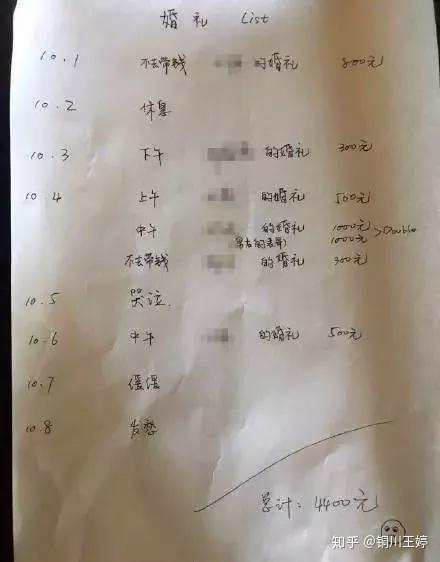 婚礼 List
10.1 不去带钱 的婚礼 800元
10.2 休息
10.3 下午 的婚礼 300元
10.4 上午 的婚礼 500元
中午 的婚礼 1000元
(男友的表哥) 1000元 >Double
不去带钱 的婚礼 300元
10.5 哭泣.
10.6 中午 的婚礼 500元
10.7 缓缓
10.8 发愁
总计: 4400元
知乎 @铜川王婷